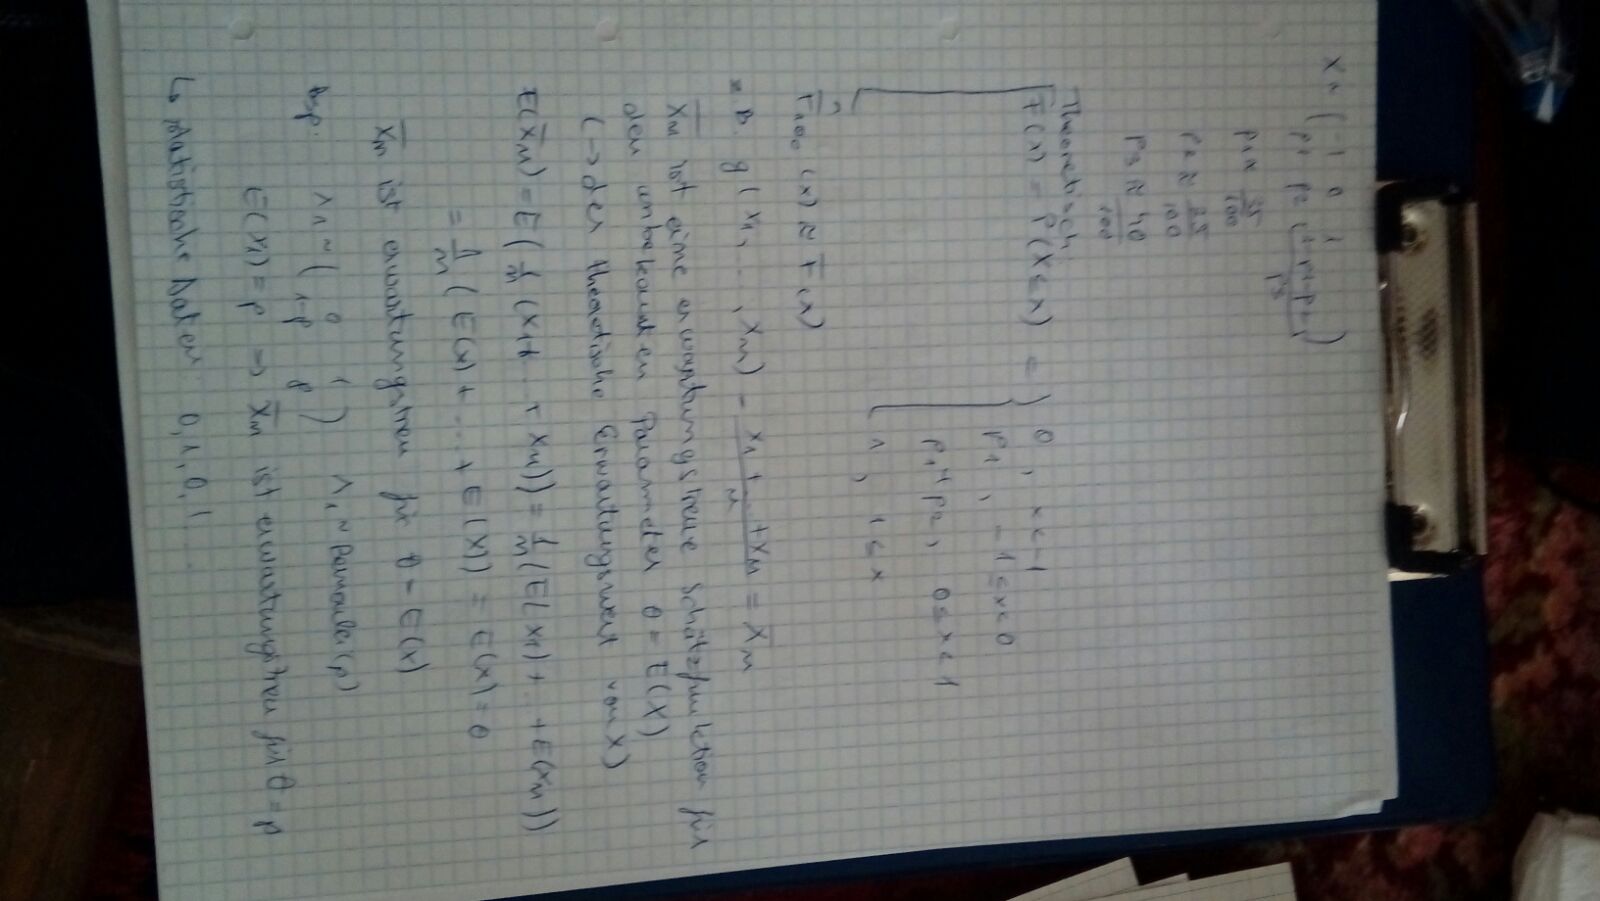 X ~ ( -1 0 1
p1 p2 1-p1-p2 )
p3
p1 ≈ 35/100
p2 ≈ 25/100
p3 ≈ 40/100
Theoretisch:
F(x) = P(X ≤ x) = { 0 , x < -1
p1 , -1 ≤ x < 0
p1+p2 , 0 ≤ x < 1
1 , 1 ≤ x
F̂100 (x) ≈ F(x)
z. B. g(X1, ..., Xn) = (X1 + ... + Xn)/n = X̄n
X̄n ist eine erwartungstreue Schätzfunktion für
den unbekannten Parameter θ = E(X)
(→ der theoretische Erwartungswert von X)
E(X̄n) = E(1/n (X1+ ... + Xn)) = 1/n (E(X1) + ... + E(Xn))
= 1/n (E(X) + ... + E(X)) = E(X) = θ
X̄n ist erwartungstreu für θ = E(X)
Bsp. X1 ~ ( 0 1
1-p p ) X1 ~ Bernoulli(p)
E(X1) = p => X̄n ist erwartungstreu für θ = p
↳ statistische Daten 0, 1, 0, 1, ...